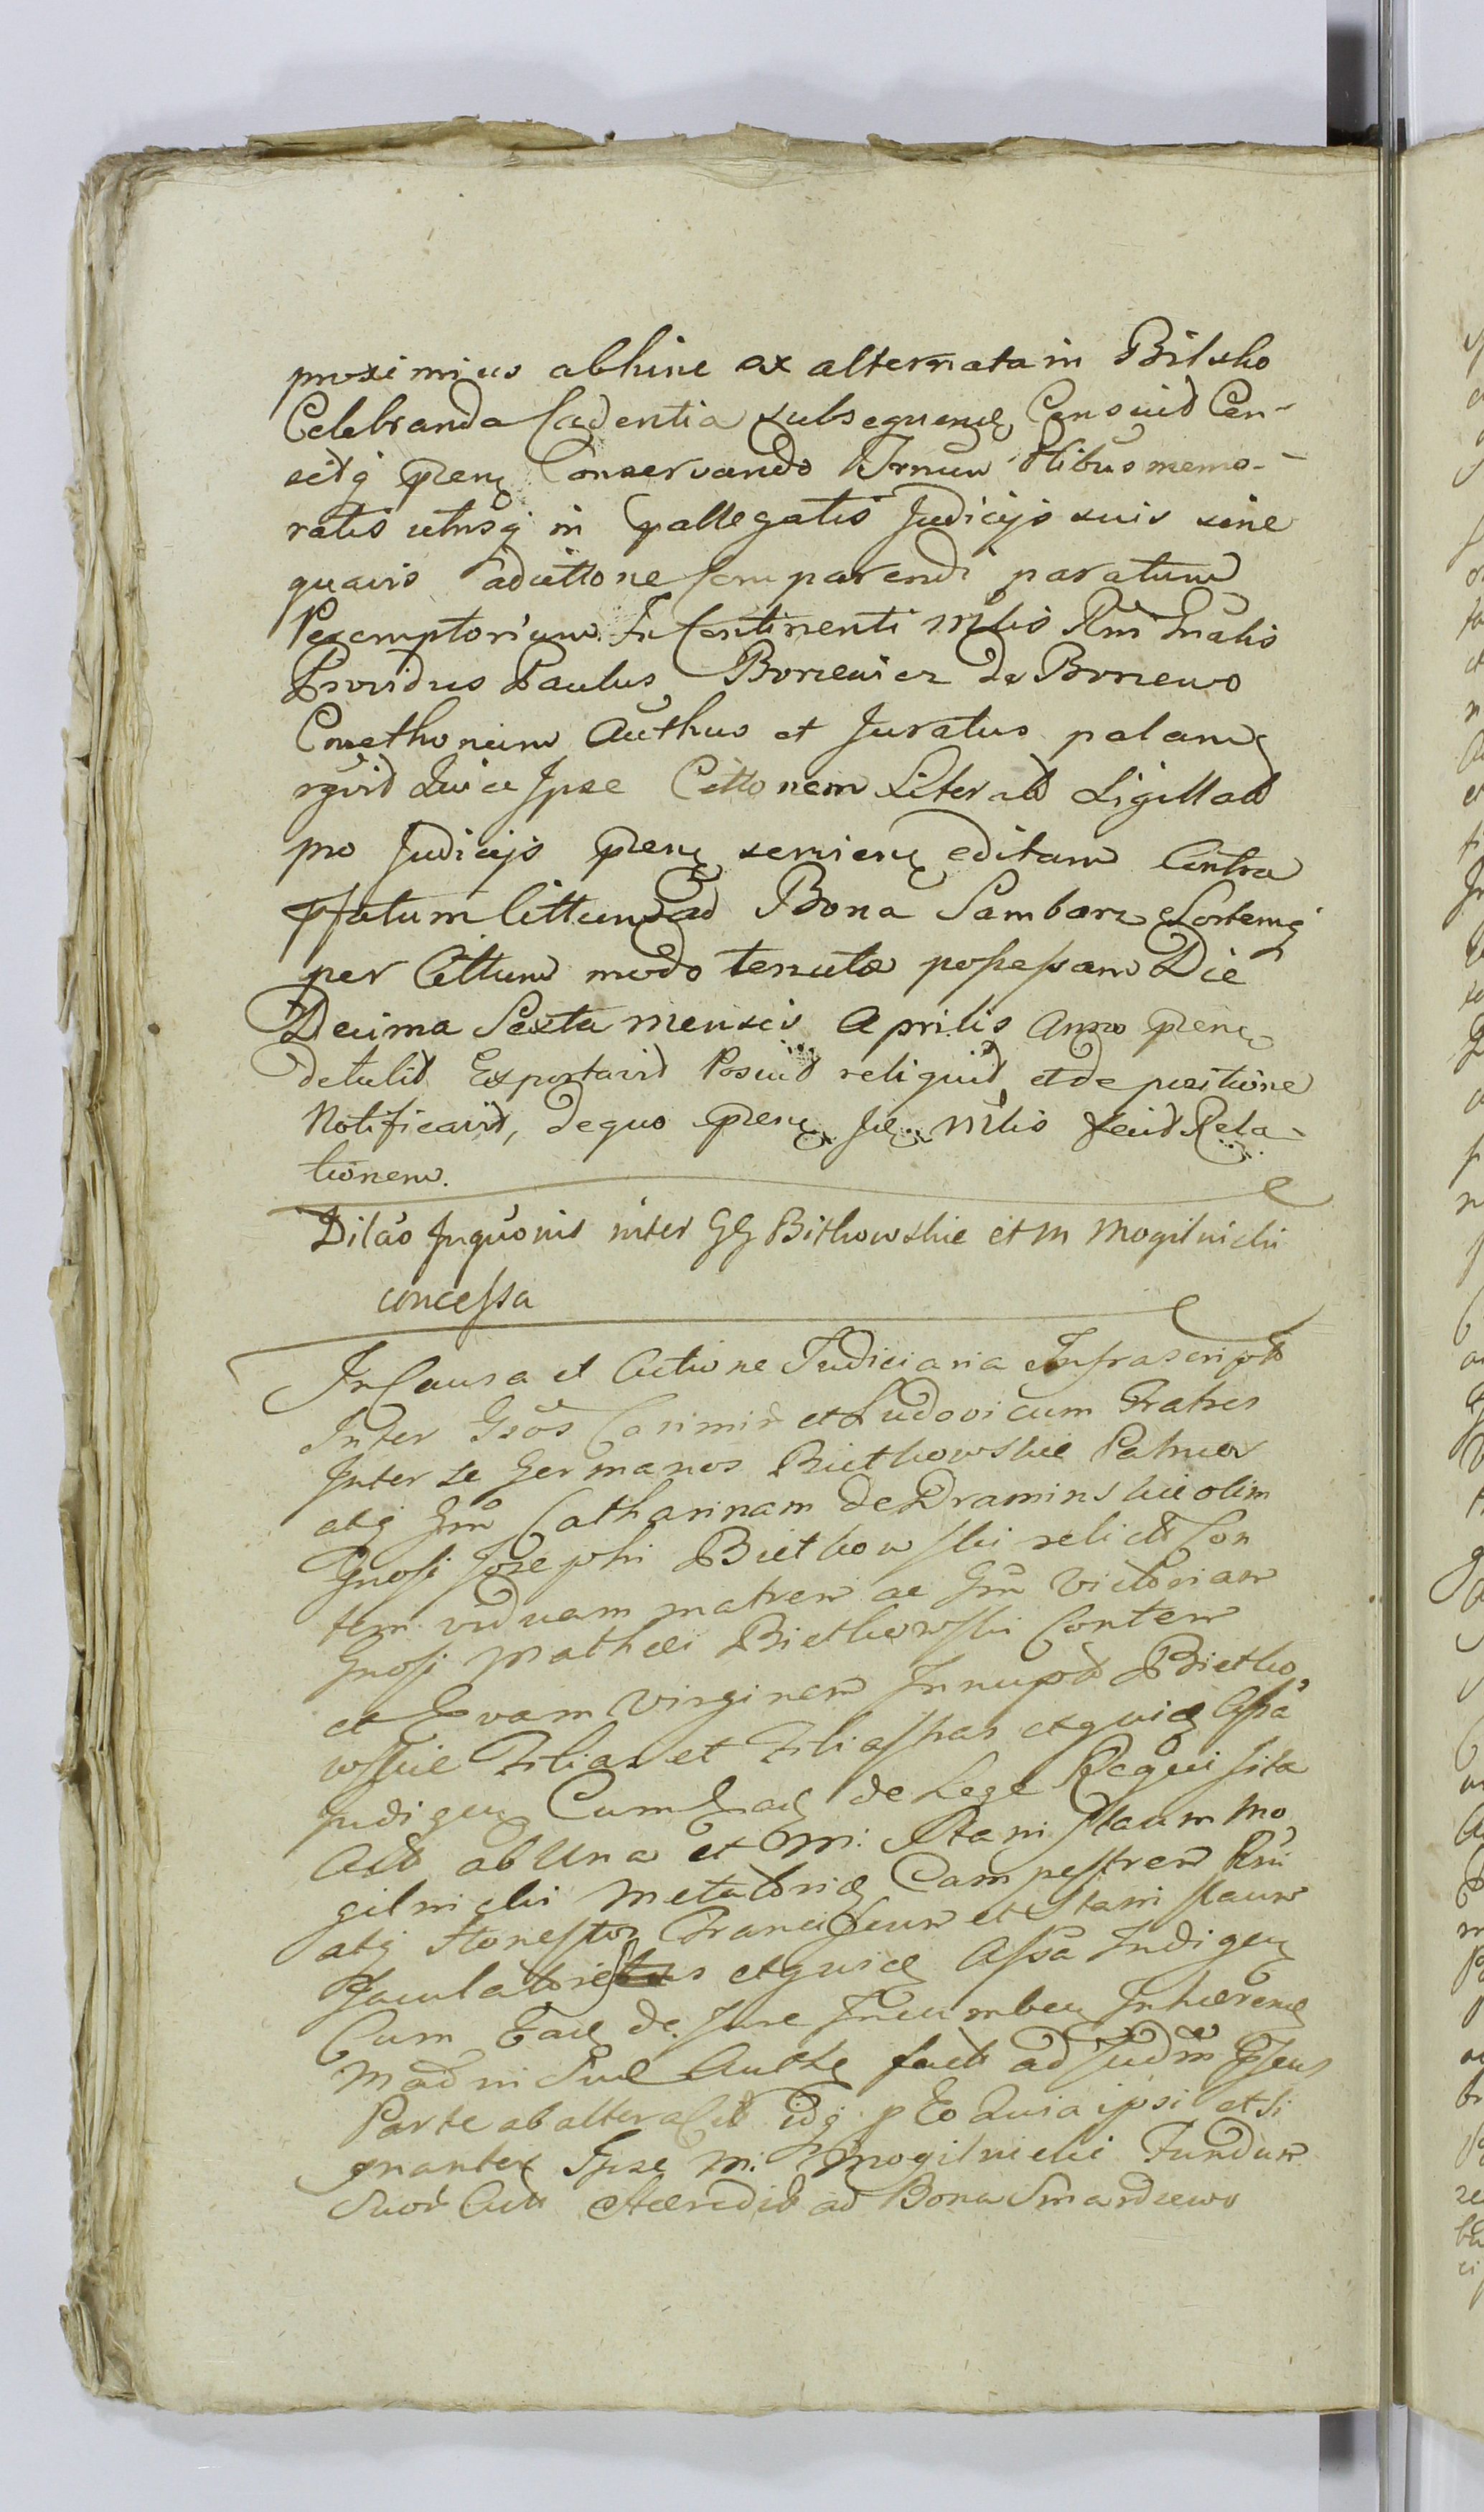 proximius abhinc ex alternata in Bilsko
Celebranda Cadentia subsequen Censuid Cen-
setq pren Conservando Trnum Ptibus memo-
ratis utrisq in pallegatis Judicijs suis sine
quavis adcittone Comparendi paratum
Peremptorium. In Continenti Mtlis Rni Gnalis
Providus Paulus Borzewicz de Borzewo
Cmethonum Authus et Juratus palam
rgvid Quia Ipse Cittonem Literatd Sigillatd
pro Judicijs pren servien editam Contra
pfatum Cittum ad Bona Samborz Sortemq
per Cittum modo tenuta possessam Die
Decima Sexta mensis Aprilis Anno pren
detulid Exportavid Posuid reliquid et de positione
Notificavid, de quo pren Mtlis fecid Rela-
tionem.
Dilao Inquonis inter GG Bitkowskie et M Mogilnicki
concessa
In Causa et Actione Judiciaria Infrascripta
Inter Gsos Casimir et Ludovicum Fratres
Inter se Germanos Bietkowskie Patruos
atq Gm Catharinam de Draminskie olim
Gnosi Josephi Bietkowski relictt Con
tem viduam matrem ac Gm Victoriam
Gnosi Mathei Bietkowski Contem
et Evam Virginem Innuptt Bietko
wskie Filias et Filiastras
Indigen Cum de Lege Requisita
Actt ab Una et M: Stanislaum Mo
gilnicki Metatorie Campestrem Rni
atq Honestos Franciscum et Stanislaum
Assa Indigen
Cum de Jure Incumben Inhaeren
facta ad Judm
Parte ab altera Citt idq p Eo Quia ipsi et si
gnanter Ipse M. Mogilnicki Fundum
Suor Actt Haereditt ad Bona Smardzewo